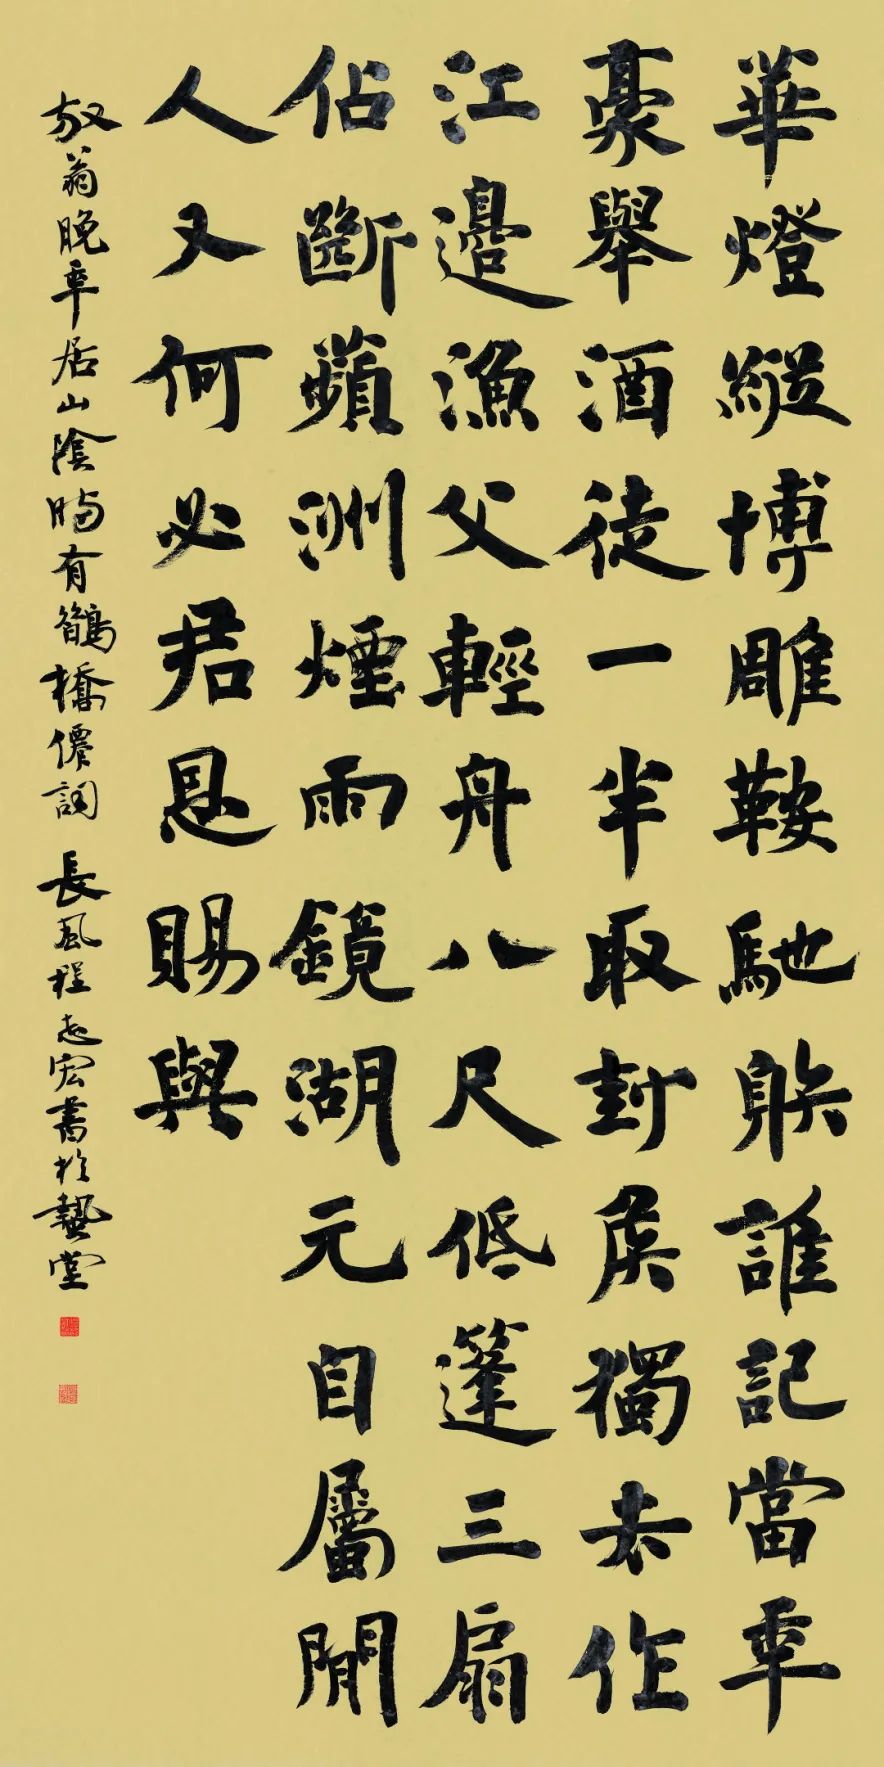 華燈縱博雕鞍馳䠶誰記當年
豪舉酒徒一半取封矦獨去作
江邊漁父輕舟八尺低篷三扇
佔斷蘋洲煙雨鏡湖元自屬閒
人又何必君恩賜與
放翁晚年居山陰時有鵲橋僊詞 長風程志宏書於蟄堂